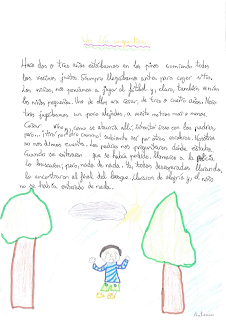 Hace dos o tres años estábamos en los pinos comiendo todos
los vecinos juntos. Siempre llegábamos antes para coger sitio.
Los niños, nos poníamos a jugar al fútbol y, claro, también venían
los niños pequeños. Uno de ellos era César, de tres o cuatro años. Noso
tros jugábamos un poco alejados, a veinte metros más o menos.
César vino, como se aburría allí, volvió con los padres,
pero... por otro camino! subiendo por otros senderos. Nosotros
no nos dimos cuenta. Los padres nos preguntaron dónde estaba.
Cuando se enteraron que se había perdido, llamaron a la policía
lo buscaron; pero, nada de nada. Ya, todos desesperados llorando,
lo encontraron al final del bosque. Lloraron de alegría y, el niño
no se había enterado de nada.